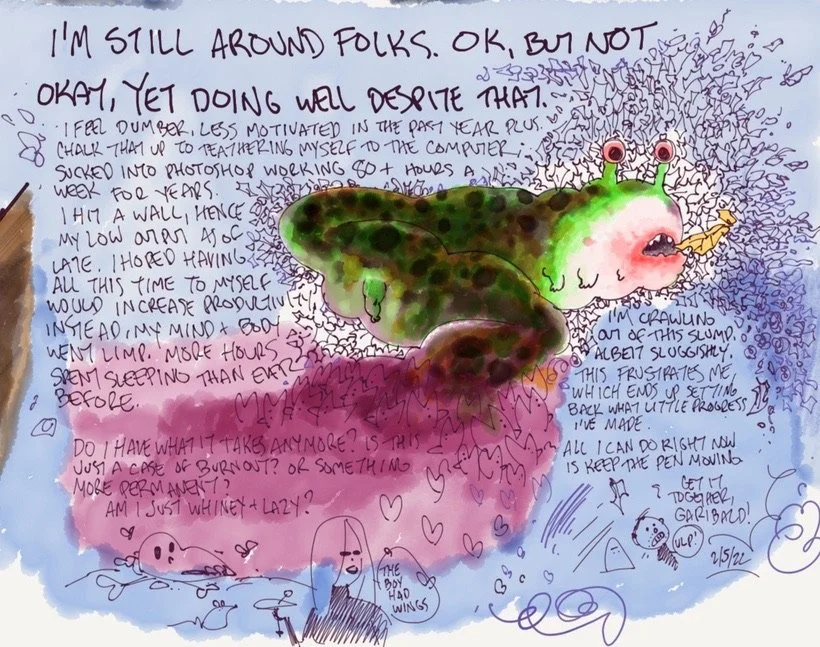 I'M STILL AROUND FOLKS. OK, BUT NOT
OKAY, YET DOING WELL DESPITE THAT.
I FEEL DUMBER, LESS MOTIVATED IN THE PAST YEAR PLUS.
CHALK THAT UP TO TEATHERING MYSELF TO THE COMPUTER,
SUCKED INTO PHOTOSHOP WORKING 80+ HOURS A
WEEK FOR YEARS.
I HIT A WALL, HENCE
MY LOW OUTPUT AS OF
LATE. I HOPED HAVING
ALL THIS TIME TO MYSELF
WOULD INCREASE PRODUCTIVITY
INSTEAD, MY MIND + BODY
WENT LIMP. MORE HOURS
SPENT SLEEPING THAN EVER
BEFORE.
DO I HAVE WHAT IT TAKES ANYMORE? IS THIS
JUST A CASE OF BURNOUT? OR SOMETHING
MORE PERMANENT?
AM I JUST WHINEY + LAZY?
I'M CRAWLING
OUT OF THIS SLUMP,
ALBEIT SLUGGISHLY.
THIS FRUSTRATES ME
WHICH ENDS UP SETTING
BACK WHAT LITTLE PROGRESS
I'VE MADE.
ALL I CAN DO RIGHT NOW
IS KEEP THE PEN MOVING
GET IT
TOGETHER,
GARIBALD!
ULP!
2/5/22
THE
BOY
HAD
WINGS